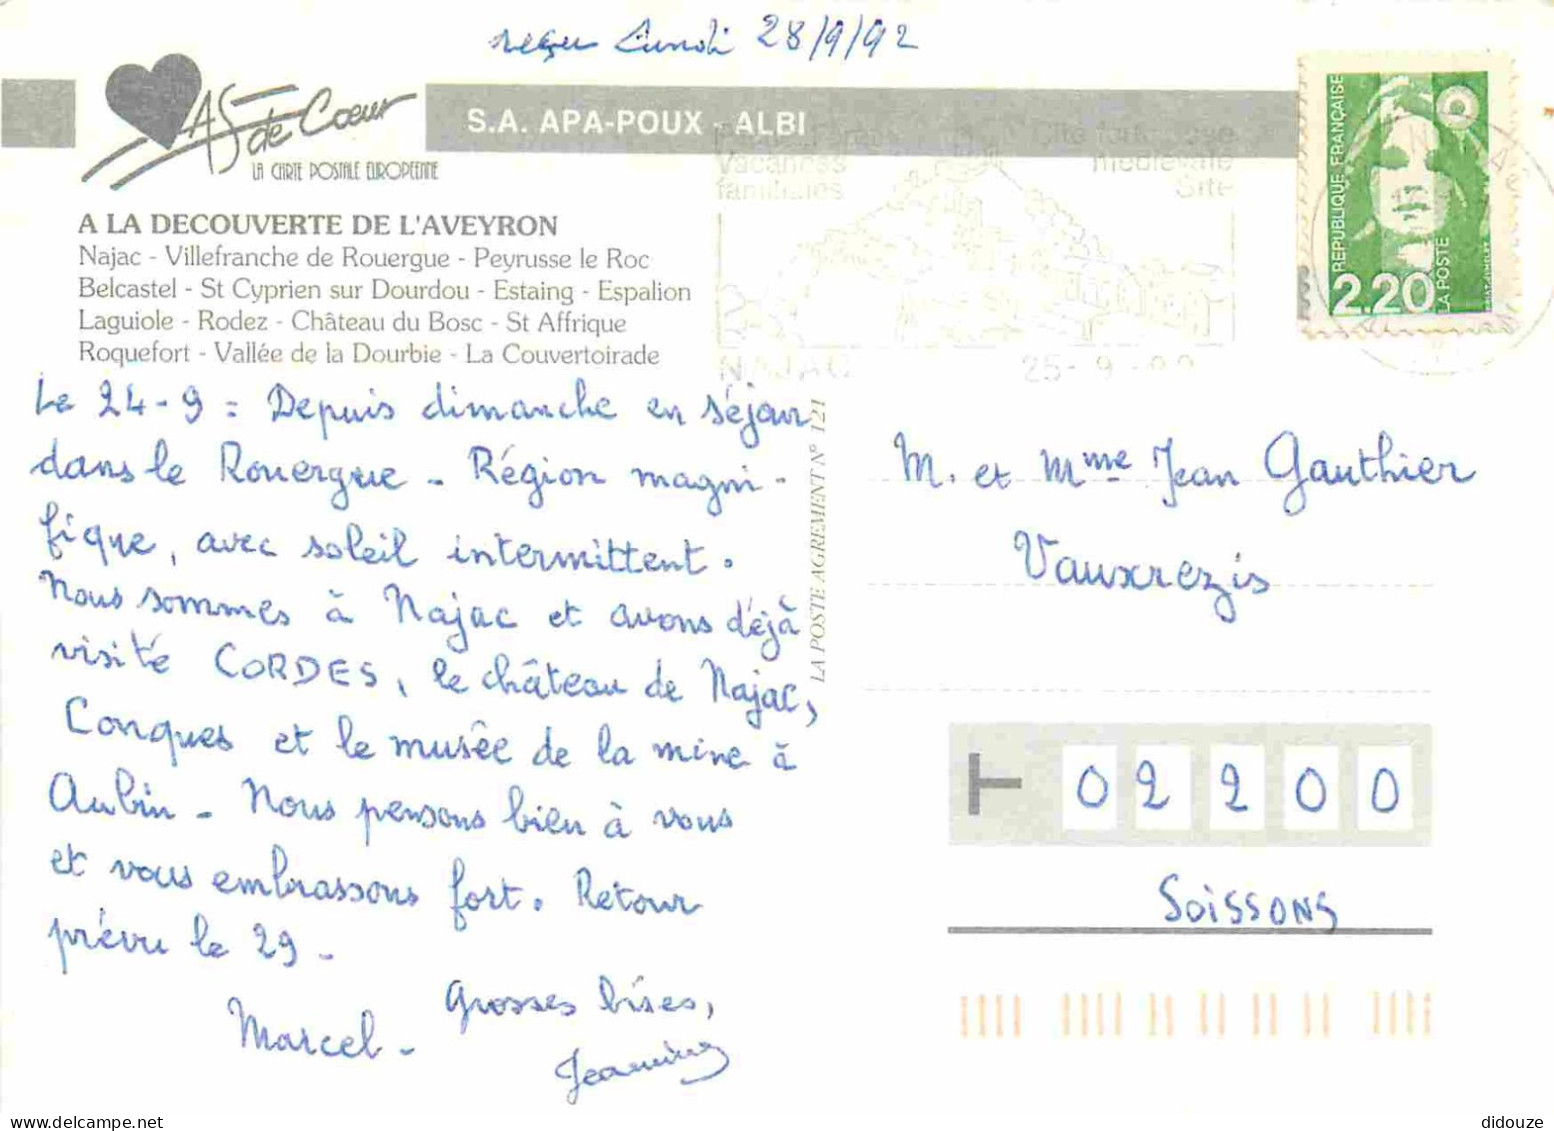 reçu Lundi 28/9/92
AS de Coeur
LA CARTE POSTALE EUROPEENNE
S.A. APA-POUX - ALBI
Vacances
familiales
médiévale
Site
NAJAC
25-9-92
REPUBLIQUE FRANÇAISE
2,20
LA POSTE
A LA DECOUVERTE DE L'AVEYRON
Najac - Villefranche de Rouergue - Peyrusse le Roc
Belcastel - St Cyprien sur Dourdou - Estaing - Espalion
Laguiole - Rodez - Château du Bosc - St Affrique
Roquefort - Vallée de la Dourbie - La Couvertoirade
Le 24-9 = Depuis dimanche en séjour
dans le Rouergue - Région magni-
fique, avec soleil intermittent.
Nous sommes à Najac et avons déjà
visité CORDES, le château de Najac,
Conques et le musée de la mine à
Aubin - Nous pensons bien à vous
et vous embrassons fort. Retour
prévu le 29 -
Grosses bises,
Marcel -
Jeannine
LA POSTE AGREMENT N° 121
M. et Mme Jean Gauthier
Vauxrezis
T 02200
SOISSONS
didouze